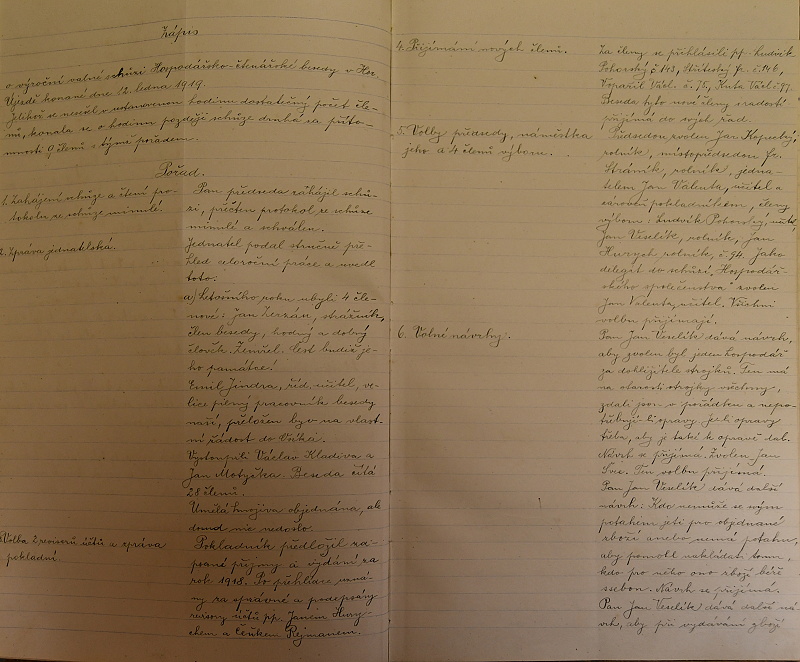 Zápis
o výroční valné schůzi Hospodářsko-čtenářské besedy v Hor.
Újezdě konané dne 12. ledna 1919.
Jelikož se nesešel v ustanovenou hodinu dostatečný počet čle-
nů, konala se o hodinu později schůze druhá za příto-
mnosti 9 členů s týmž pořadem.
Pořad.
1. Zahájení schůze a čtení pro-
tokolu ze schůze minulé.
Pan předseda zahájil schů-
zi, přečten protokol ze schůze
minulé a schválen.
2. Zpráva jednatelská.
Jednatel podal stručně pře-
hled celoroční práce a uvedl
toto:
a) Letošního roku ubyli 4 čle-
nové: Jan Zerzán, strážník,
člen besedy, hodný a dobrý
člověk. Zemřel. Čest budiž je-
ho památce!
Emil Jindra, říd. učitel, ve-
lice pilný pracovník besedy
naší, přeložen byv na vlast-
ní žádost do
Vystoupili Václav Kladiva a
Jan Motyčka. Beseda čítá
28 členů.
Umělá hnojiva objednána, ale
dosud nic nedošlo.
3. Volba 2 revisorů účtů a zpráva
pokladní.
Pokladník předložil za-
psané příjmy a vydání za
rok 1918. Po přehlídce uzná-
ny za správné a podepsány
revisory účtů pp. Janem Hury-
chem a Čeňkem Rejmanem.
4. Přijímání nových členů.
Za členy se přihlásili pp. Ludvík
Pohorský č. 143, Fr. č. 146,
Vyřašil Václ. č. 75, Kuta Václ. č. 97.
Beseda tyto nové členy s radostí
přijímá do svých řad.
5. Volby předsedy, náměstka
jeho a 4 členů výboru.
Předsedou zvolen Jan Kopecký,
rolník, místopředsedou Fr.
Straník, rolník, jedna-
telem Jan Valenta, učitel a
zároveň pokladníkem, členy
výboru: Ludvík Pohorský,
Jan Veselík, rolník, Jan
Hurych rolník, č. 94. Jako
delegát do schůzí „Hospodář-
ského společenstva" zvolen
Jan Valenta, učitel. Všichni
volbu přijímají.
6. Volné návrhy.
Pan Jan Veselík dává návrh,
aby zvolen byl jeden hospodář
za dohližitele strojků. Ten má
na starosti strojky všechny,
zdali jsou v pořádku a nepo-
třebují-li opravy. Je-li opravy
třeba, aby je také k opravě dal.
Návrh se přijímá. Zvolen Jan
Ten volbu přijímá.
Pan Jan Veselík dává další
návrh: Kdo nemůže se svým
potahem jeti pro objednané
zboží anebo nemá potahu,
aby pomohl nakládati tomu,
kdo pro něho ono zboží béře
sebou. Návrh se přijímá.
Pan Jan Veselík dává další ná-
vrh, aby při vydávání zboží